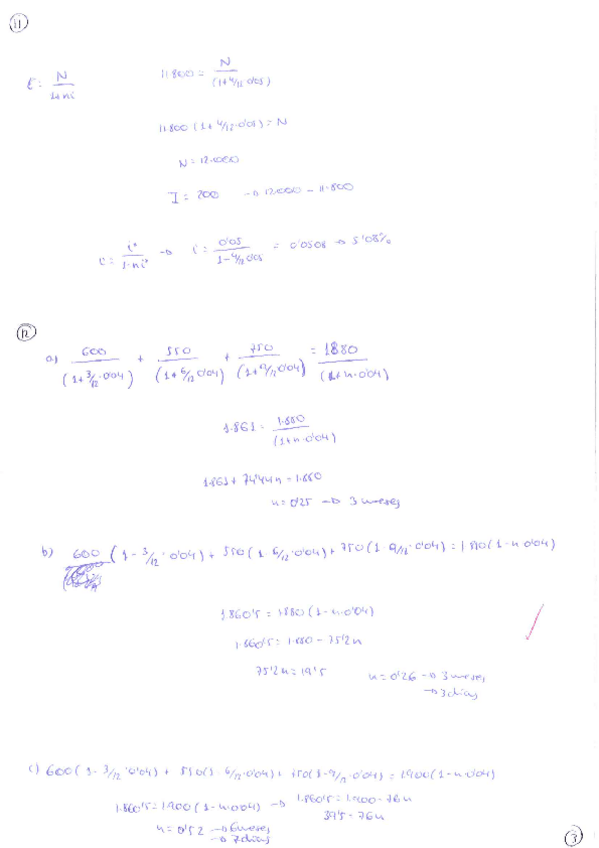 11
E = N/(1+ni)    11.800 = N/(1+4/12·0'05)
11.800 (1+4/12·0'05) = N
N = 12.000
I = 200 → 12.000 - 11.800
i = i*/(1-ni*) → i = 0'05/(1-4/12·0'05) = 0'0508 → 5'08%
12
a) 600/(1+3/12·0'04) + 550/(1+6/12·0'04) + 750/(1+9/12·0'04) = 1880/(1+n·0'04)
1.861 = 1.880/(1+n·0'04)
1.861 + 74'44n = 1.880
n = 0'25 → 3 meses
b) 600 (1-3/12·0'04) + 550(1-6/12·0'04) + 750(1-9/12·0'04) = 1880(1-n·0'04)
1.860'5 = 1.880(1-n·0'04)
1.860'5 = 1.880 - 75'2n
75'2n = 19'5    n = 0'26 → 3 meses
→ 3 días
c) 600(1-3/12·0'04) + 550(1-6/12·0'04) + 750(1-9/12·0'04) = 1900(1-n·0'04)
1.860'5 = 1.900(1-n·0'04) → 1.860'5 = 1.900 - 76n
39'5 = 76n
n = 0'52 → 6 meses
→ 7 días
3